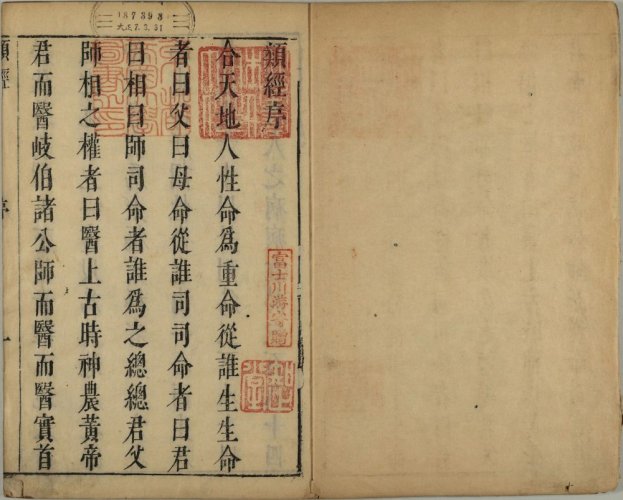 187393
大正7.3.31
類經序
合天地人性命爲重命從誰生生命
者曰父曰母命從誰司司命者曰君
曰相曰師司命者誰爲之總總君父
師相之權者曰醫上古時神農黃帝
君而醫岐伯諸公師而醫而醫實首
類經
序
一
富士川游寄贈